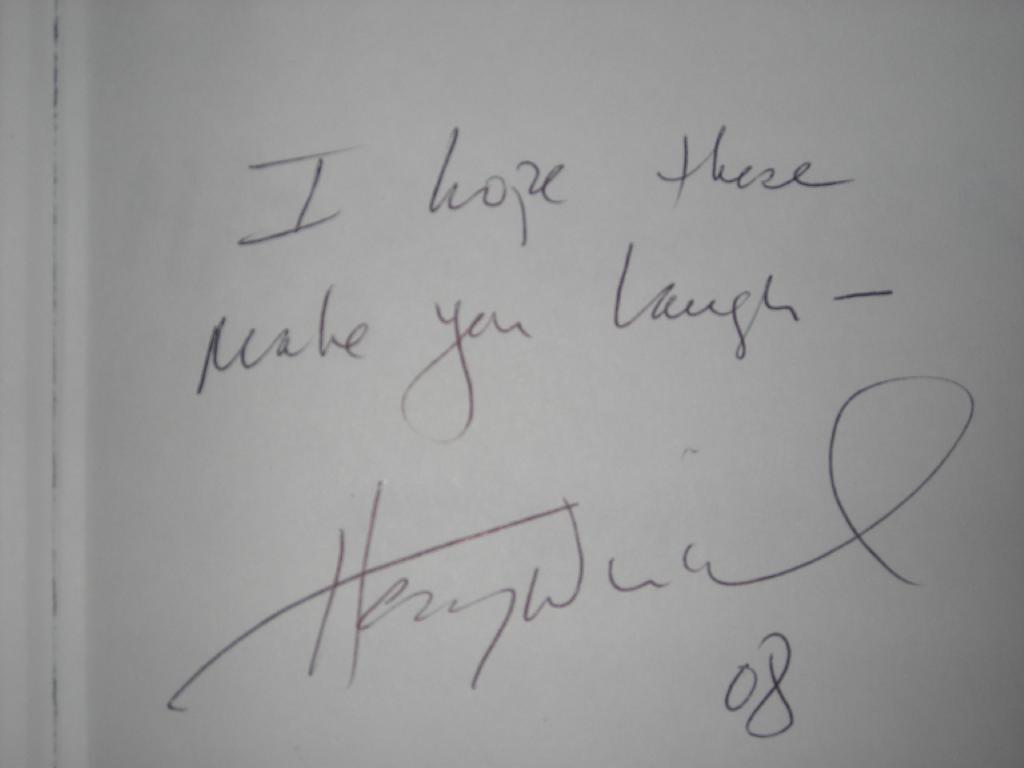 I hope these
make you laugh —
Henry Winkler
08